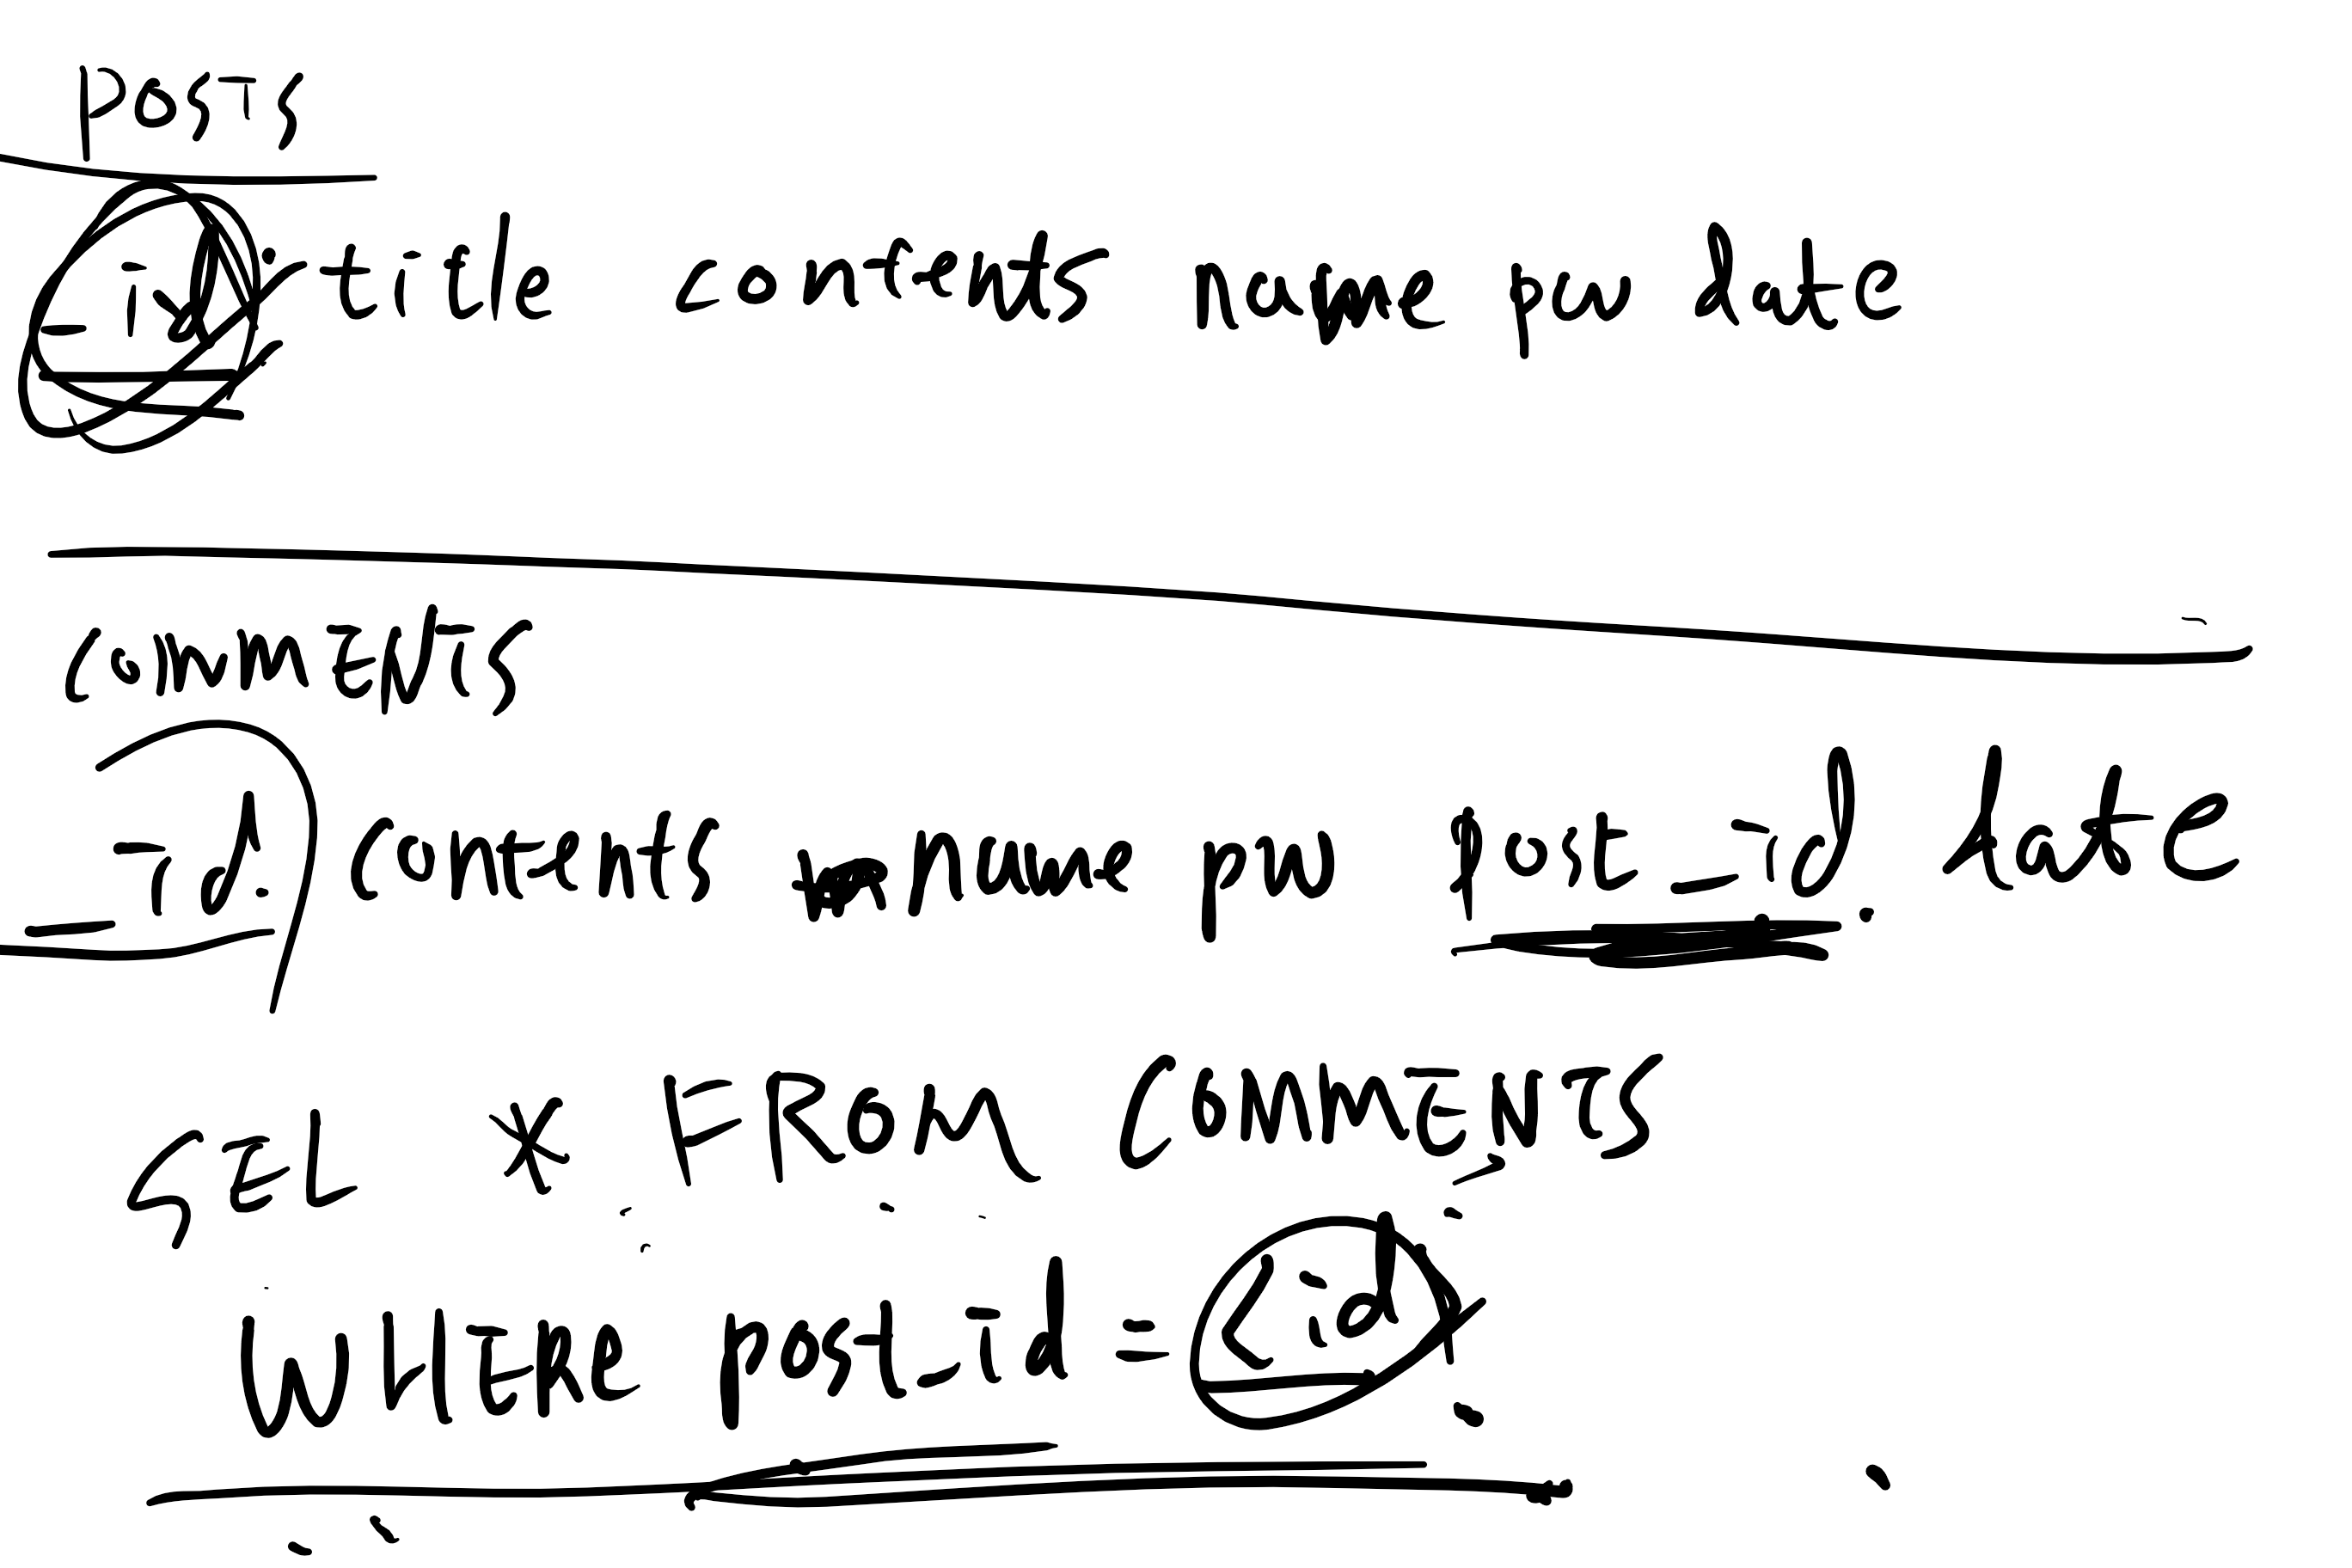 posts
id title contents name pw date
comments
id contents name pw post_id date
SEL * FROM COMMENTS
WHERE post_id = id